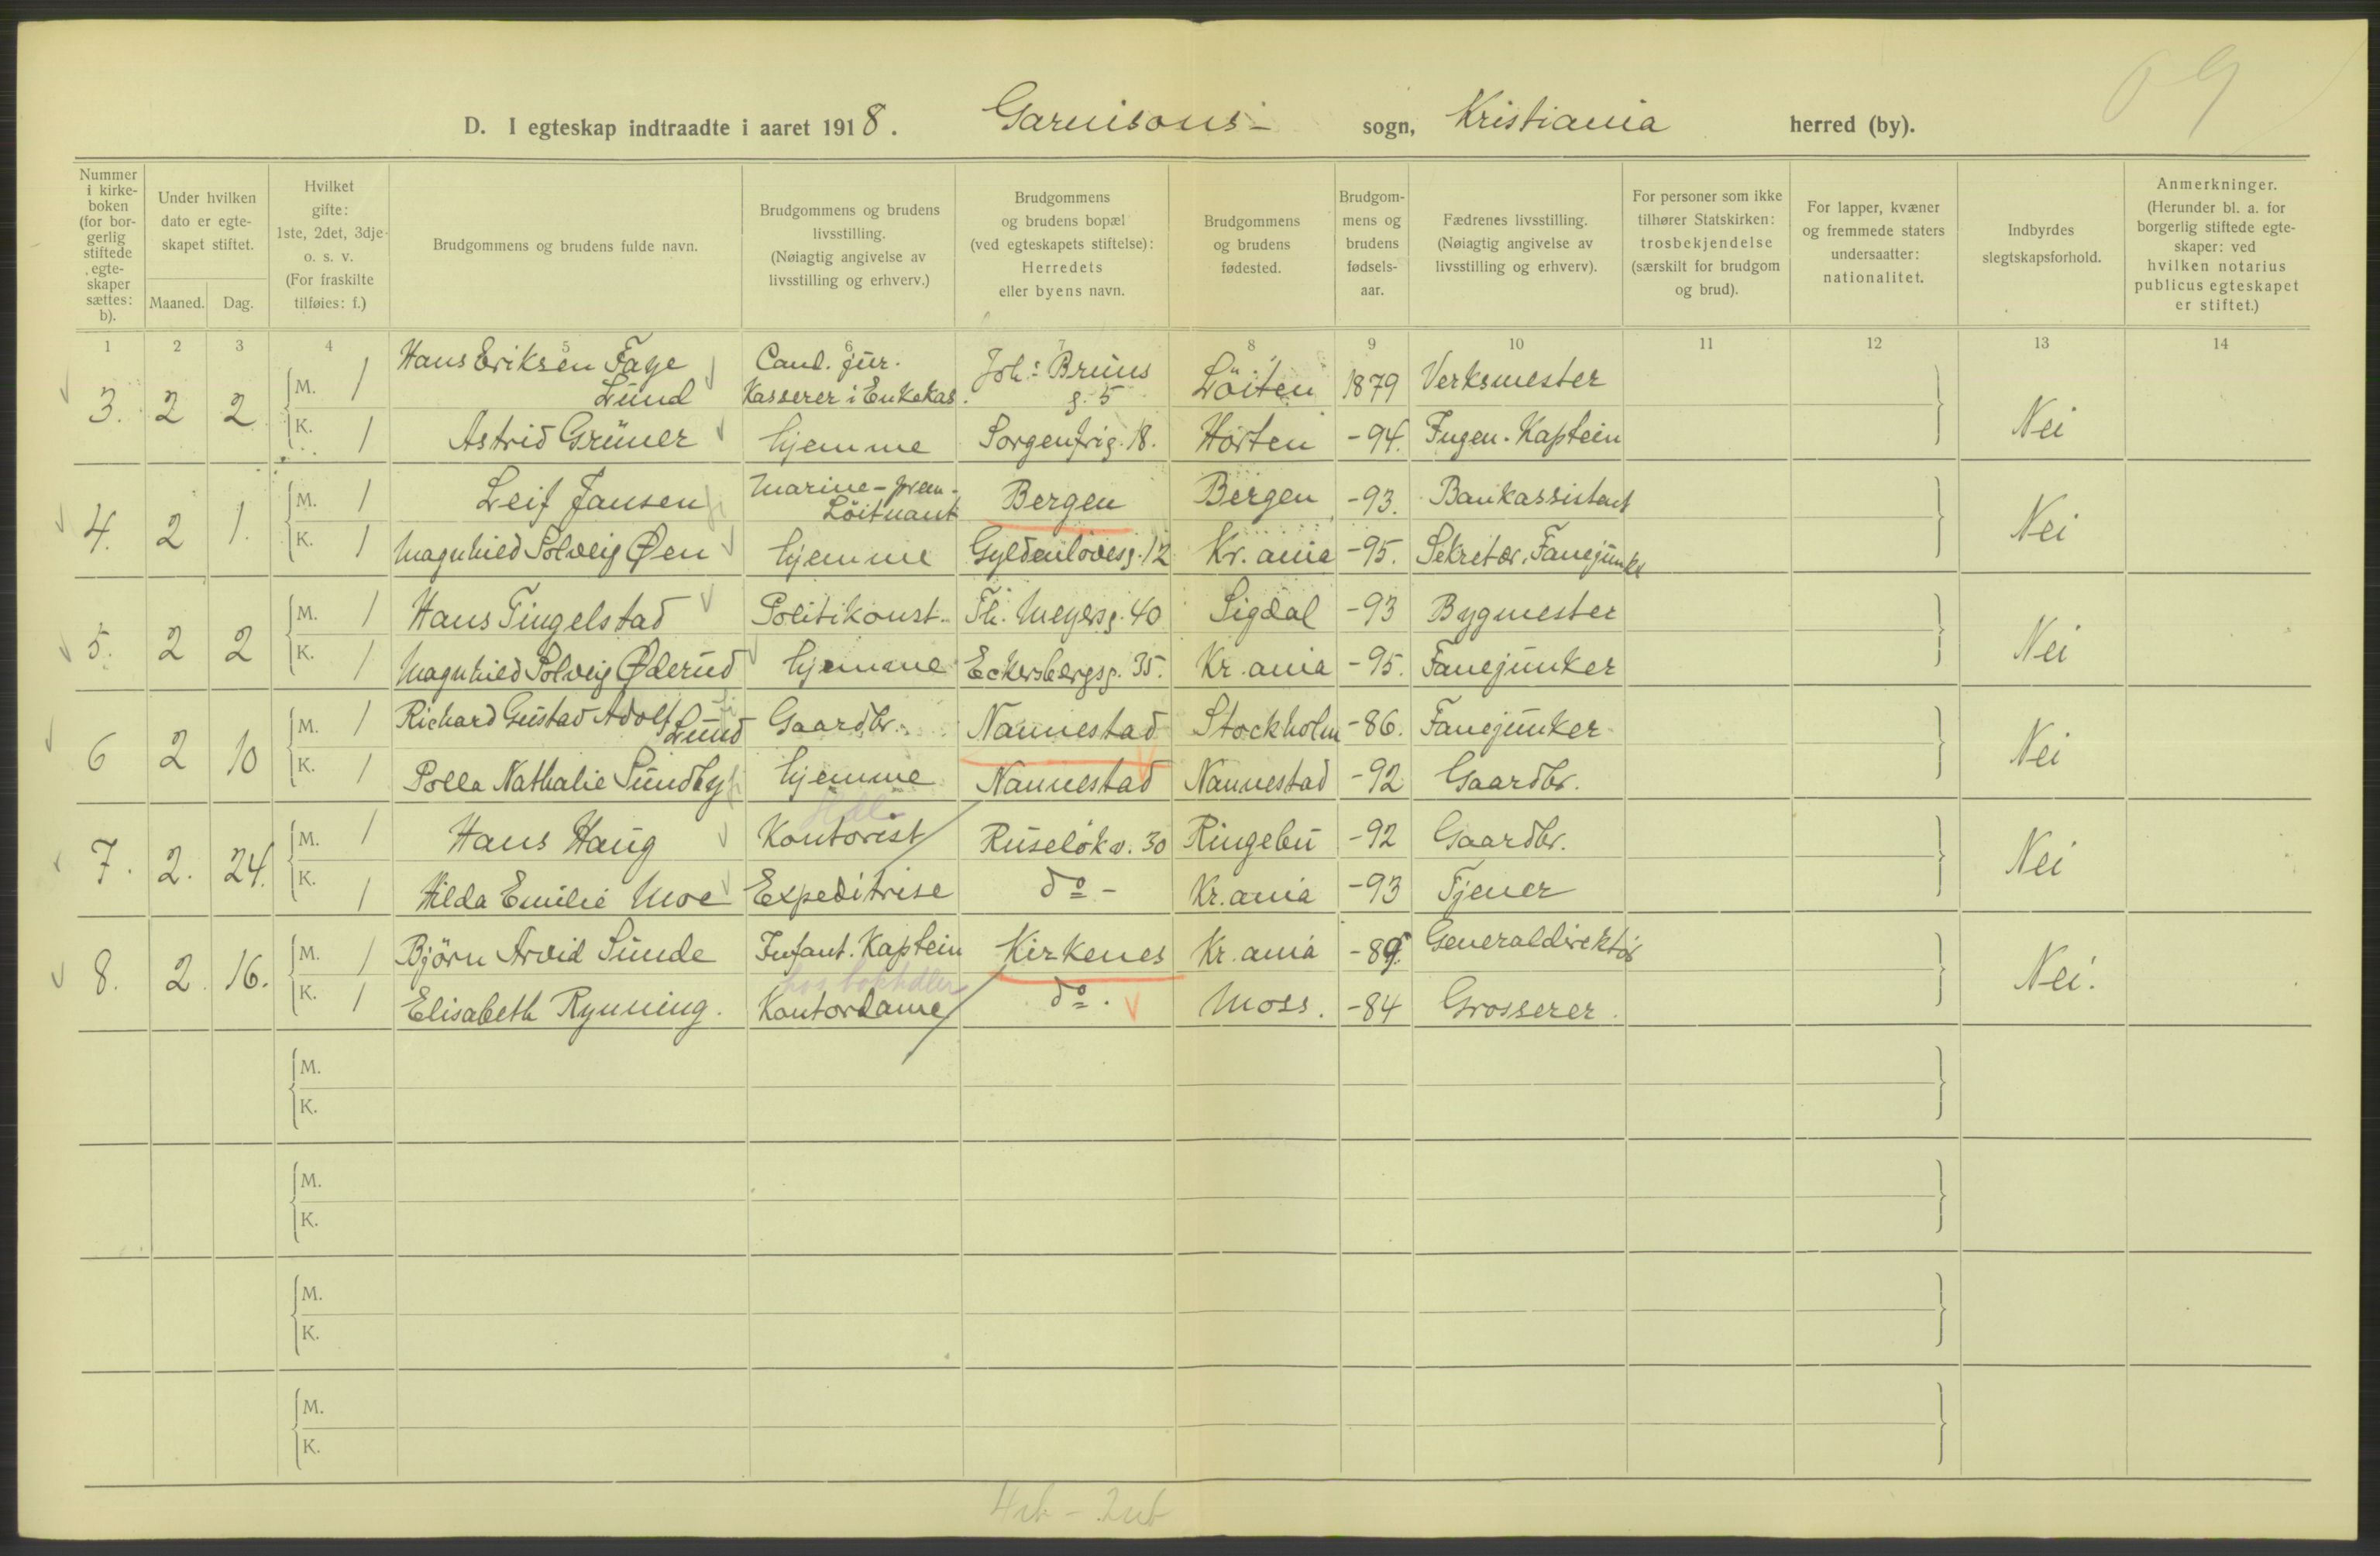 D. I egteskap indtraadte i aaret 1918. Garnisons- sogn, Kristiania herred (by).
Nummer i kirkeboken (for borgerlig stiftede egteskaper sættes: b).
Under hvilken dato er egteskapet stiftet.
Maaned. Dag.
Hvilket gifte: 1ste, 2det, 3dje o. s. v. (For fraskilte tilføies: f.)
Brudgommens og brudens fulde navn.
Brudgommens og brudens livsstilling. (Nøiagtig angivelse av livsstilling og erhverv.)
Brudgommens og brudens bopæl (ved egteskapets stiftelse): Herredets eller byens navn.
Brudgommens og brudens fødested.
Brudgommens og brudens fødselsaar.
Fædrenes livsstilling. (Nøiagtig angivelse av livsstilling og erhverv).
For personer som ikke tilhører Statskirken: trosbekjendelse (særskilt for brudgom og brud).
For lapper, kvæner og fremmede staters undersaatter: nationalitet.
Indbyrdes slegtskapsforhold.
Anmerkninger. (Herunder bl. a. for borgerlig stiftede egteskaper: ved hvilken notarius publicus egteskapet er stiftet.)
1 2 3 4 5 6 7 8 9 10 11 12 13 14
3. 2 2 M. 1 Hans Eriksen Faye Lund Cand. jur. Kasserer i Enkekas. Joh: Bruns g. 5 Löiten 1879 Verksmester
K. 1 Astrid Grüner hjemme Sorgenfrig. 18. Horten -94. Ingen. Kaptein Nei
4. 2 1. M. 1 Leif Jansen Marine-prem.- Löitnant Bergen Bergen -93. Bankassistent
K. 1 Magnhild Solveig Øen hjemme Gyldenlövesg. 12 Kr.ania -95. Sekretær, Fanejunker Nei
5. 2 2 M. 1 Hans Tingelstad Politikonst. Th. Meyersg. 40 Sigdal -93 Bygmester
K. 1 Magnhild Solveig Øderud hjemme Eckersbergsg. 35. Kr.ania -95. Fanejunker Nei
6 2 10 M. 1 Richard Gustav Adolf Lund Gaardbr. Nannestad Stockholm -86. Fanejunker
K. 1 Polla Nathalie Sundby hjemme Nannestad Nannestad -92 Gaardbr. Nei
7. 2. 24. M. 1 Hans Haug Kontorist Ruselökv. 30 Ringebu -92 Gaardbr.
K. 1 Hilda Emilie Moe Expeditrise do - Kr.ania -93 Tjener Nei
8. 2. 16. M. 1 Björn Arvid Sunde Infant. Kaptein Kirkenes Kr.ania Generaldirektör
K. 1 Elisabeth Rynning. Kontordame do. Moss. -84 Grosserer. Nei.
M.
K.
M.
K.
M.
K.
M.
K.